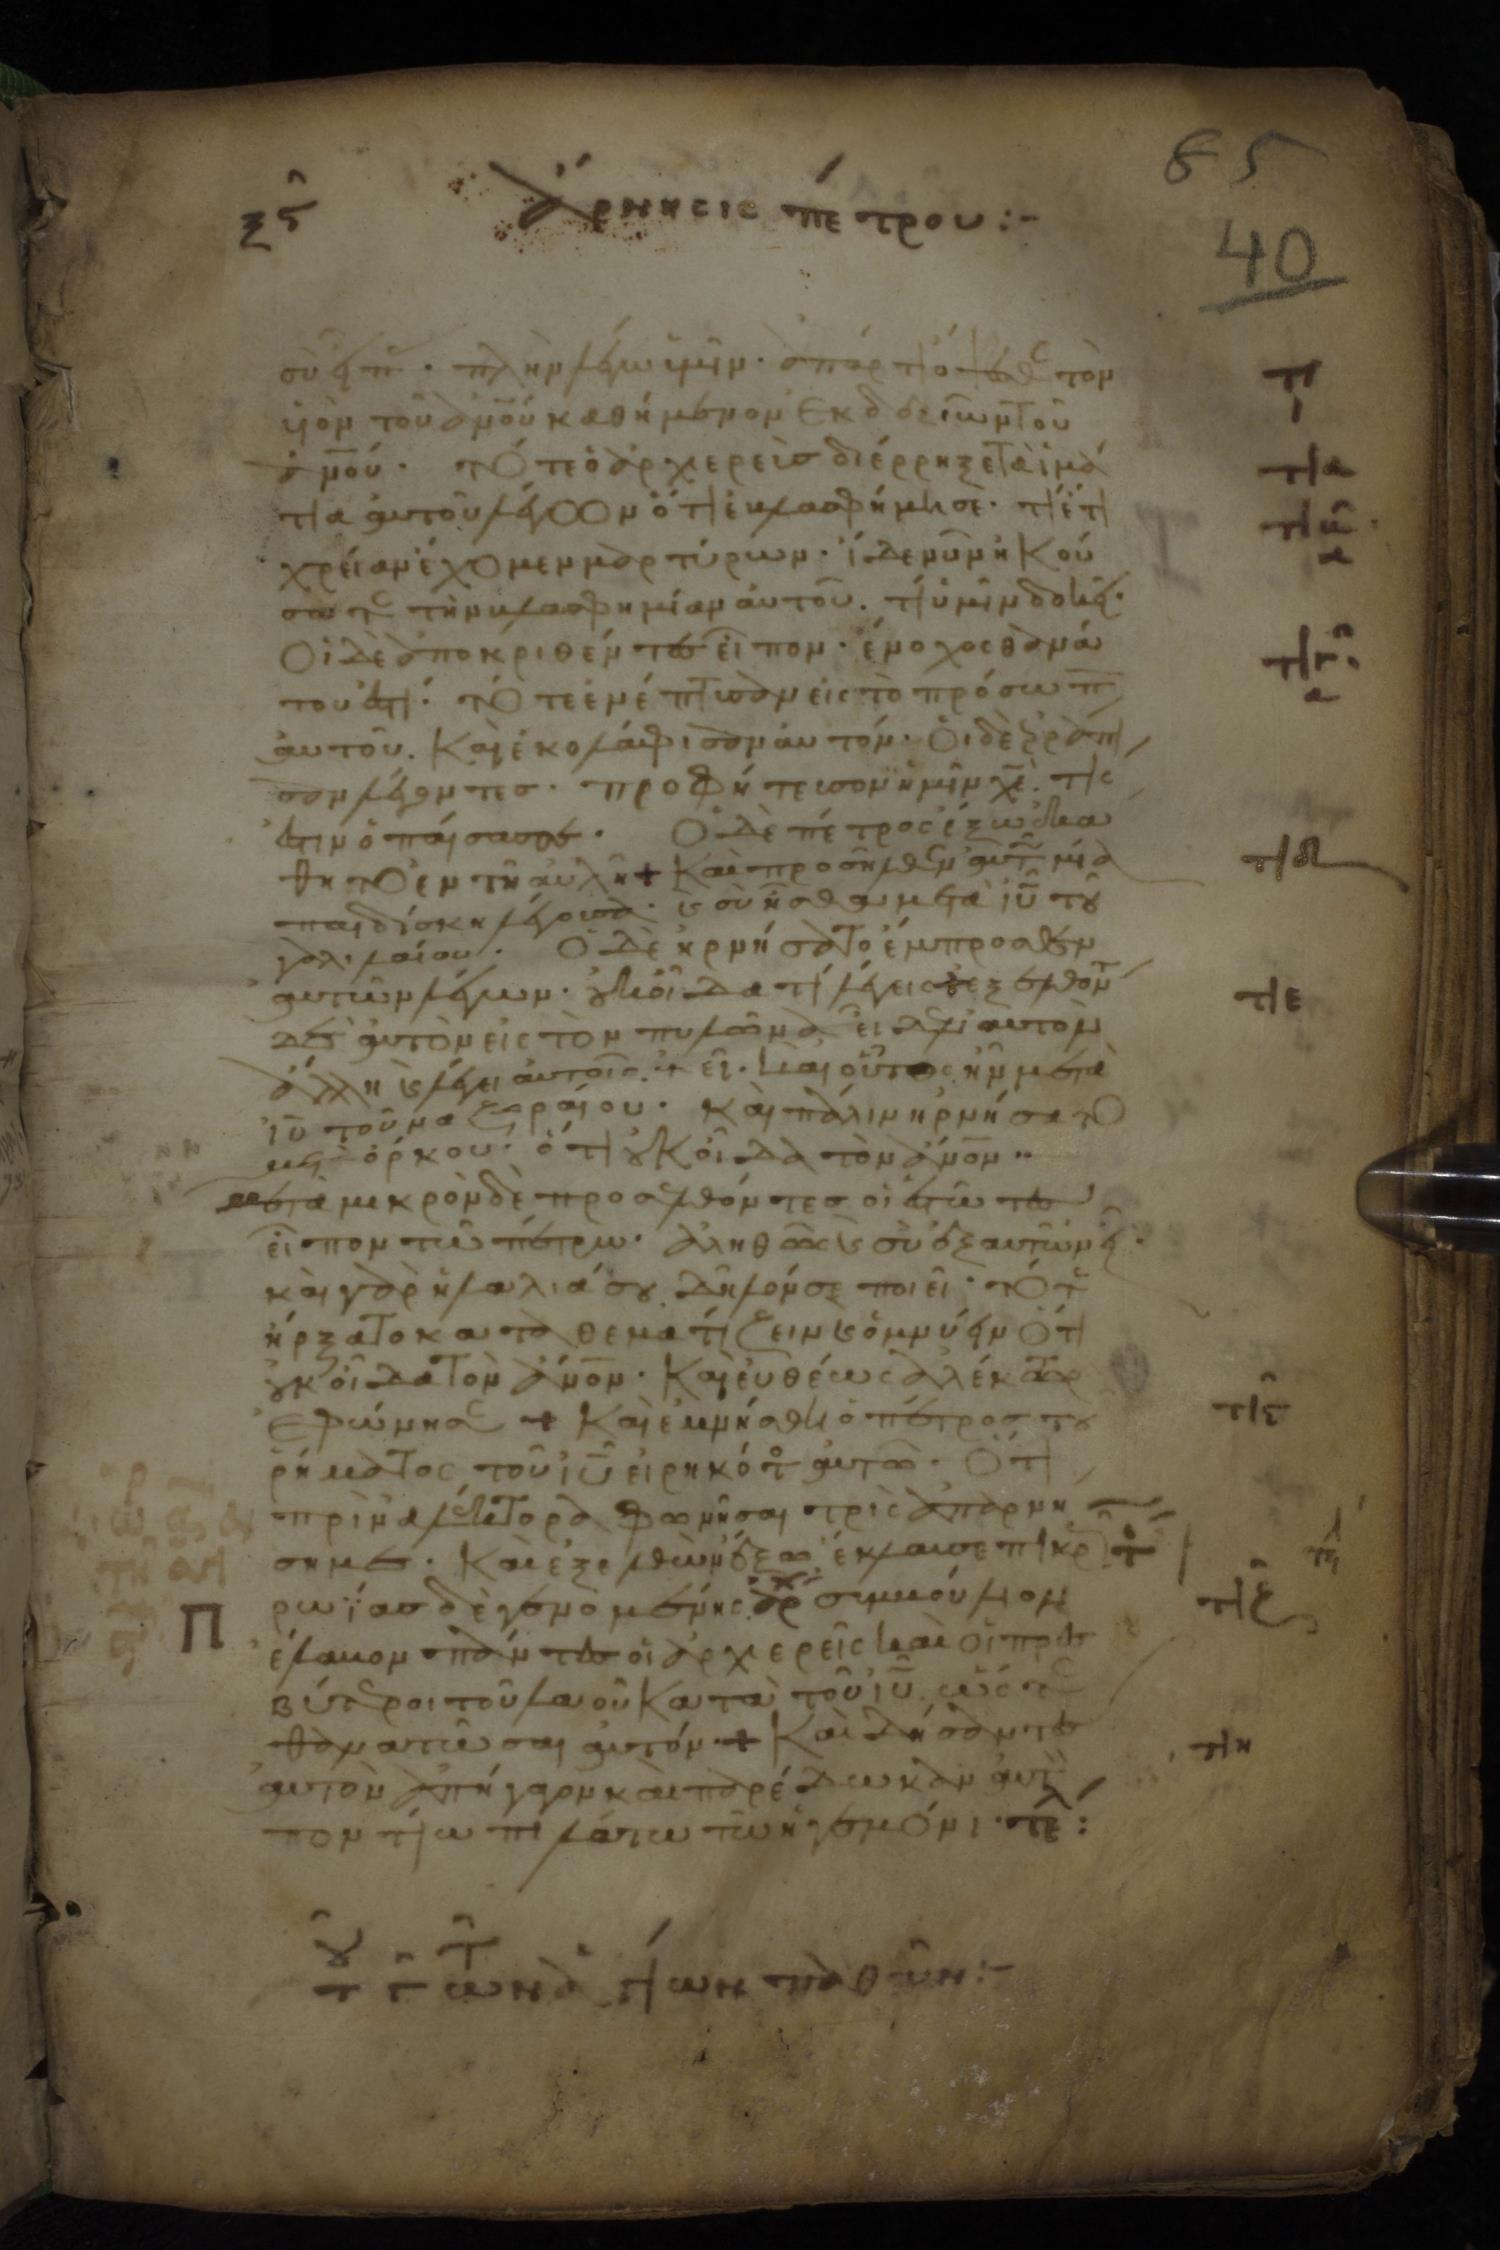 85
ξϛ ἄρνησις πέτρου :-
40
σὺ εἶπ · πλὴν λέγω ὑμῖν · ἀπάρτι ὄψεσθε τὸν
υἱὸν τοῦ ἀνου καθήμενον ἐκ δεξιῶν τοῦ
τότε ὁ ἀρχιερεὺς διέρρηξε τὰ ἱμά
τια αὐτοῦ λέγων ὅτι ἐβλασφήμησε · τί ἔτι
χρείαν ἔχομεν μαρτύρων · ἴδε νῦν ἠκού
σατε τὴν βλασφημίαν αὐτοῦ · τί ὑμῖν δοκεῖ ·
Οἱ δὲ ἀποκριθέντες εἶπον · ἔνοχος θανά
του ἐστί · τότε ἐνέπτυσαν εἰς τὸ πρόσωπ
αὐτοῦ · Καὶ ἐκολάφισαν αὐτόν · Οἱ δὲ ἐρράπι
σαν λέγοντες · προφήτευσον ἡμῖν χε · τίς
ἐστιν ὁ παίσας σε · Ὁ δὲ πέτρος ἔξω ἐκά
θητο ἐν τῆ αὐλῆ + Καὶ προσῆλθεν αὐτ μία
παιδίσκη λέγουσα · ϗ σὺ ἦσθα μετὰ ιυ τοῦ
γαλιλαίου · Ὁ δὲ ἠρνήσατο ἔμπροσθεν
αὐτῶν λέγων · οὐκ οἶδα τί λέγεις + ἐξελθόντ
δὲ αὐτὸν εἰς τὸν πυλῶνα εἶδεν αὐτὸν
ἄλλη ϗ λέγει αὐτοῖς ἐκεῖ · καὶ οὗτος ἦν μετὰ
ιυ τοῦ ναζωραίου · καὶ πάλιν ἠρνήσατο
μεθ ὅρκου · ὅτι οὐκ οἶδα τὸν ἀνον
μετὰ μικρὸν δὲ προσελθόντες οἱ ἑστῶτες
εἶπον τῶ πέτρω · ἀληθῶς ϗ σὺ ἐξ αὐτῶν εἶ ·
καὶ γὰρ ἡ λαλιά σου δῆλόν σε ποιεῖ · τότε
ἤρξατο καταθεματίζειν ϗ ὀμνύειν ὅτι
οὐκ οἶδα τὸν ἀνον · Καὶ εὐθέως ἀλέκτωρ
ἐφώνησε + Καὶ ἐμνήσθη ὁ πέτρος τοῦ
ῥήματος τοῦ ιυ εἰρηκότος αὐτῶ · ὅτι
πρὶν ἀλέκτορα φωνῆσαι τρὶς ἀπαρνή
ση με · Καὶ ἐξελθὼν ἔξω ἔκλαυσε πικρ
πρωΐας δὲ γενομένης ἀρχ συμβούλιον
ἔλαβον πάντες οἱ ἀρχιερεῖς καὶ οἱ πρεσ
βύτεροι τοῦ λαοῦ κατὰ τοῦ ιυ ὥστε
θανατῶσαι αὐτόν + Καὶ δήσαντες
αὐτὸν ἀπήγαγον καὶ παρέδωκαν αὐτ
ποντίω πιλάτω τῶ ἡγεμόνι · τελ :
Π
τι
τια
τιδ
τιε
τιϛ
τιζ
τιη